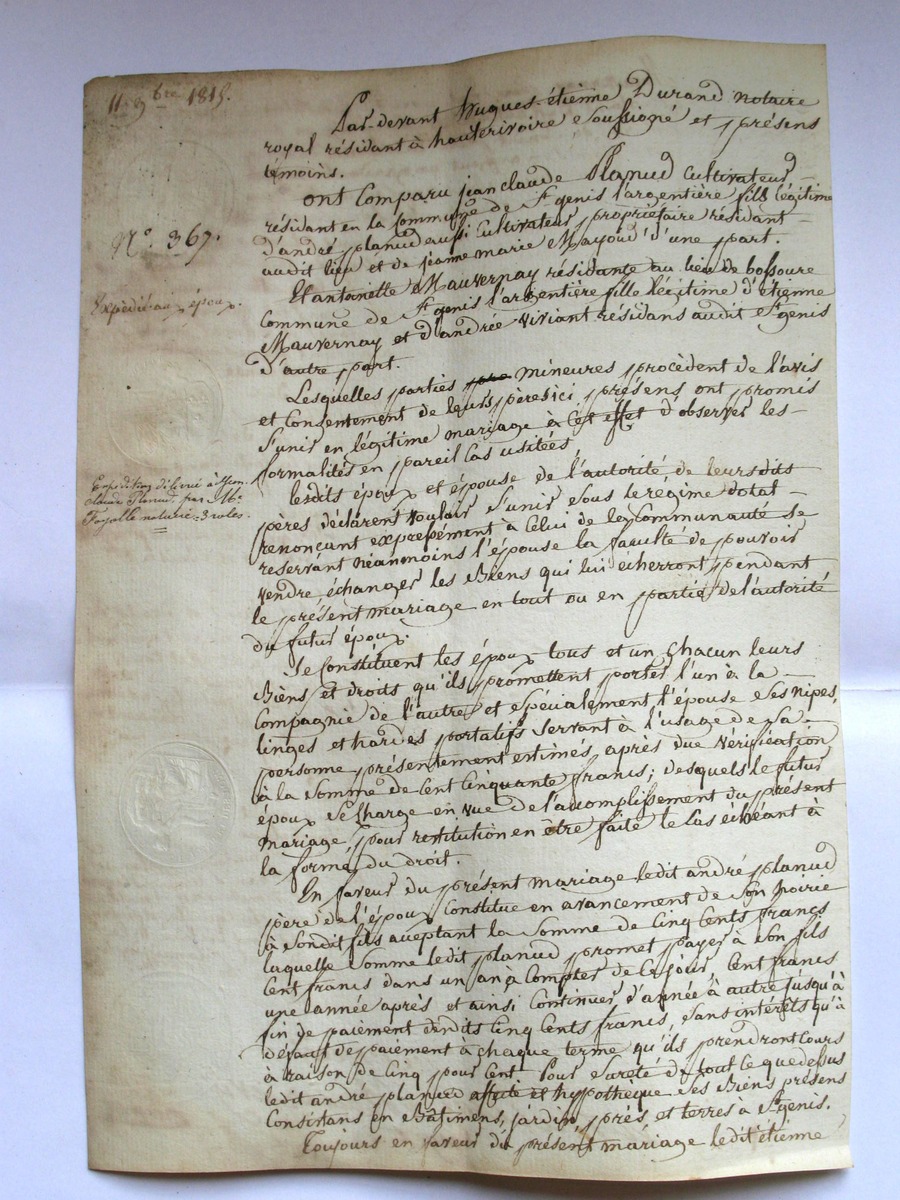 11 9bre 1815.
Par-devant hugues-étienne Durand notaire
royal résidant à hauterivoire Soussigné et présens
témoins.
ont Comparu jean claude Planud Cultivateur
résidant en la Commune de St genis l'argentière fils légitime
d'andré planud aussi Cultivateur propriétaire résidant
audit lieu et de jeanne marie Mayoud d'une part.
Et antoinette Mauvernay résidante au lieu de bossoure
Commune de St genis l'argentière fille légitime d'étienne
Mauvernay et d'andrée Viviant résidans audit St genis
d'autre part.
N.o 367.
Expédié aux époux.
Lesquelles parties mineures procèdent de l'avis
et Consentement de leurs pères ici présens, ont promis
S'unir en légitime mariage à Cet effet d'observer les
formalités en pareil Cas usitées
lesdits époux et épouse de l'autorité de leursdits
pères déclarent vouloir S'unir Sous le régime dotal
renonçant expressément à Celui de la Communauté Se
reservant néanmoins l'épouse la faculté de pouvoir
vendre, échanger les Biens qui lui écherront pendant
le présent mariage en tout ou en partie de l'autorité
du futur époux.
Expédition délivré à Jean
claude Planud par Me
Fayolle notaire = 3 roles.
Se Constituent les époux tous et un chacun leurs
Biens et droits qu'ils promettent porter l'un à la
Compagnie de l'autre, et Spécialement l'épouse Ses nipes,
linges et hardes portatifs Servant à l'usage de Sa
personne présentement estimés, après due vérification
à la Somme de Cent Cinquante francs; desquels le futur
époux Se Charge en vue de l'accomplissement du présent
mariage, pour restitution en être faite le Cas échéant à
la forme du droit.
En faveur du présent mariage ledit andré planud
père de l'époux Constitue en avancement de Son hoirie
à Sondit fils acceptant la Somme de Cinq Cents francs
laquelle Somme ledit planud promet payer à Son fils
Cent francs dans un an à Compter de Ce jour, Cent francs
une année après et ainsi Continuer d'année à autre jusqu'à
fin de paiement desdits Cinq Cents francs, Sans intérêts qu'à
défaut de paiement à chaque terme qu'ils prendront Cours
à raison de Cinq pour Cent. Pour Sureté de tout Ce que dessus
ledit andré planud affecte et hypothèque Ses Biens présens
Consistans en Bâtimens, jardin, prés et terres à St genis.
Toujours en faveur du présent mariage ledit étienne